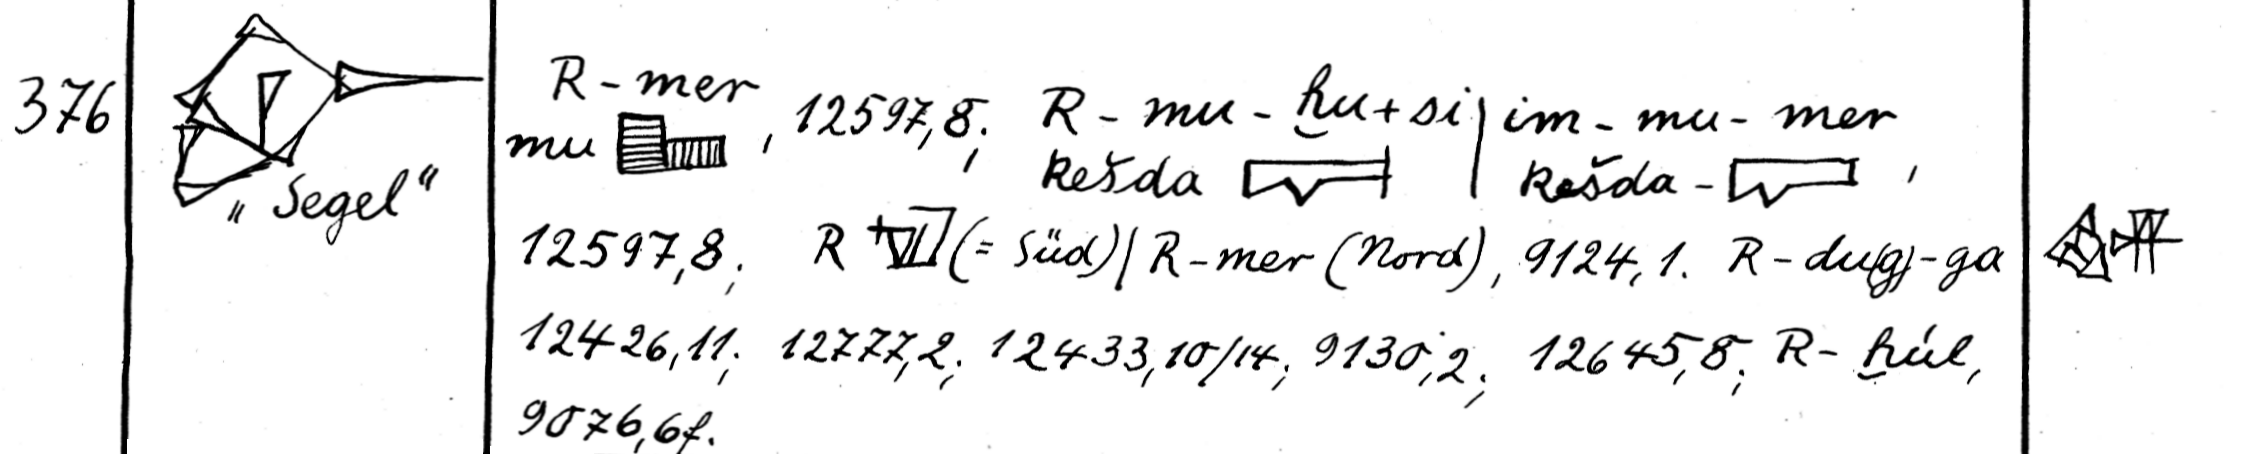 376
„Segel“
R - mer
mu , 12597,8; R - mu - ḫu + si | im - mu - mer
kešda | kešda - ,
12597,8; R (= Süd) | R - mer (Nord), 9124,1. R - du(g) - ga
12426,11; 12777,2; 12433,10/14; 9130,2; 12645,8; R - ḫúl,
9076,6f.